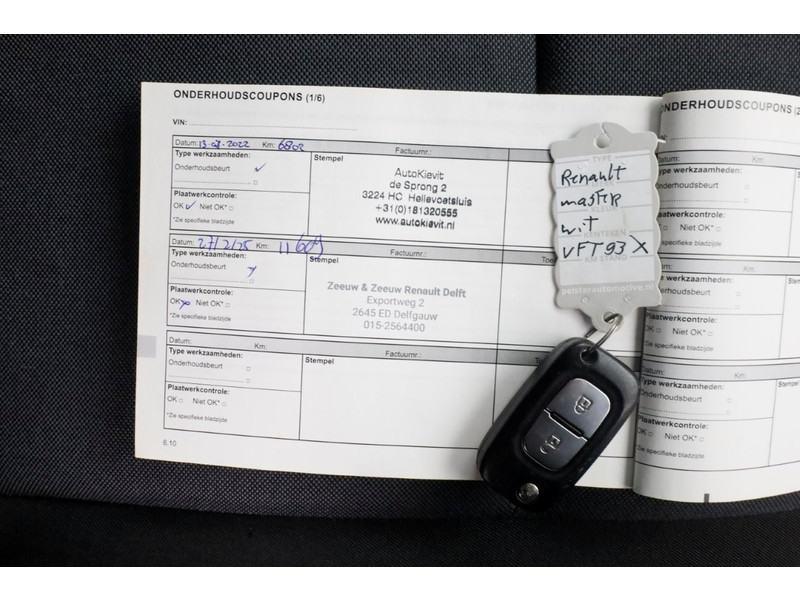 ONDERHOUDSCOUPONS (1/6)
VIN:
Datum: 13-07-2022 Km: 6802 Factuurnr.:
Type werkzaamheden:
Onderhoudsbeurt ✓
Stempel
AutoKievit
de Sprong 2
3224 HC Hellevoetsluis
+31(0)181320555
www.autokievit.nl
Plaatwerkcontrole:
OK ✓ Niet OK* □
*Zie specifieke bladzijde
Datum: 27/2/25 Km: 11609
Type werkzaamheden:
Onderhoudsbeurt
Stempel
Zeeuw & Zeeuw Renault Delft
Exportweg 2
2645 ED Delfgauw
015-2564400
Plaatwerkcontrole:
OK Niet OK* □
*Zie specifieke bladzijde
Datum: Km: Factuurnr.:
Type werkzaamheden:
Onderhoudsbeurt □
Stempel
Plaatwerkcontrole:
OK □ Niet OK* □
*Zie specifieke bladzijde
6.10
TYPE
Renault
master
KLEUR
wit
KENTEKEN
VFT93X
KM STAND
petstarautomotive.nl
ONDERHOUDSCOUPONS (2
Type werkzaamheden:
Onderhoudsbeurt □
Plaatwerkcontrole:
Niet OK* □
specifieke bladzijde
Km:
Type werkzaamheden:
Onderhoudsbeurt □
Plaatwerkcontrole:
Niet OK* □
specifieke bladzijde
Km:
Type werkzaamheden:
Onderhoudsbeurt □
Plaatwerkcontrole:
OK □ Niet OK* □
specifieke bladzijde